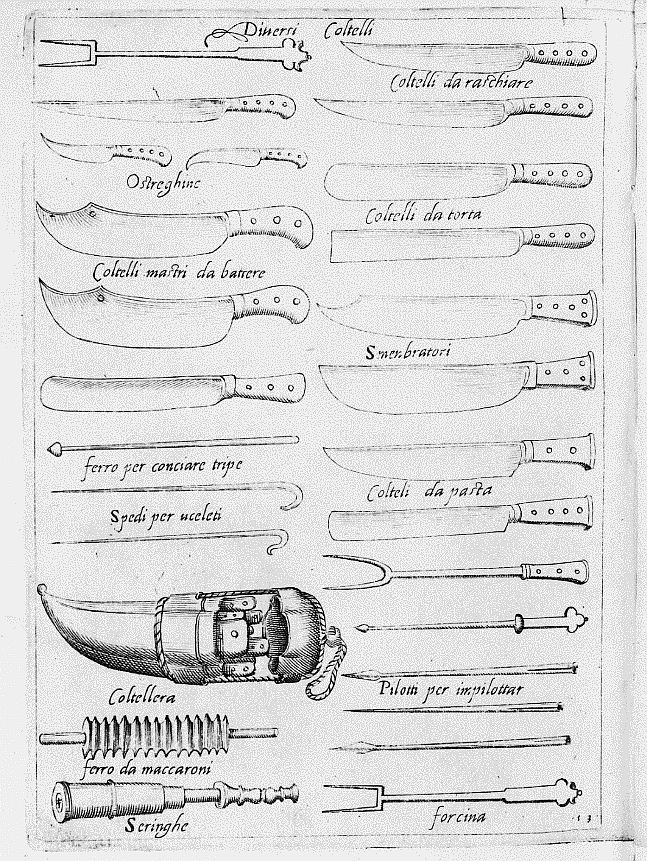 Diuersi Coltelli
Coltelli da raschiare
Ostreghine
Coltelli da torta
Coltelli mastri da battere
Smenbratori
ferro per conciare tripe
Colteli da pasta
Spedi per uceleti
Pilotti per impilottar
Coltellera
ferro da maccaroni
Seringhe
forcina
13